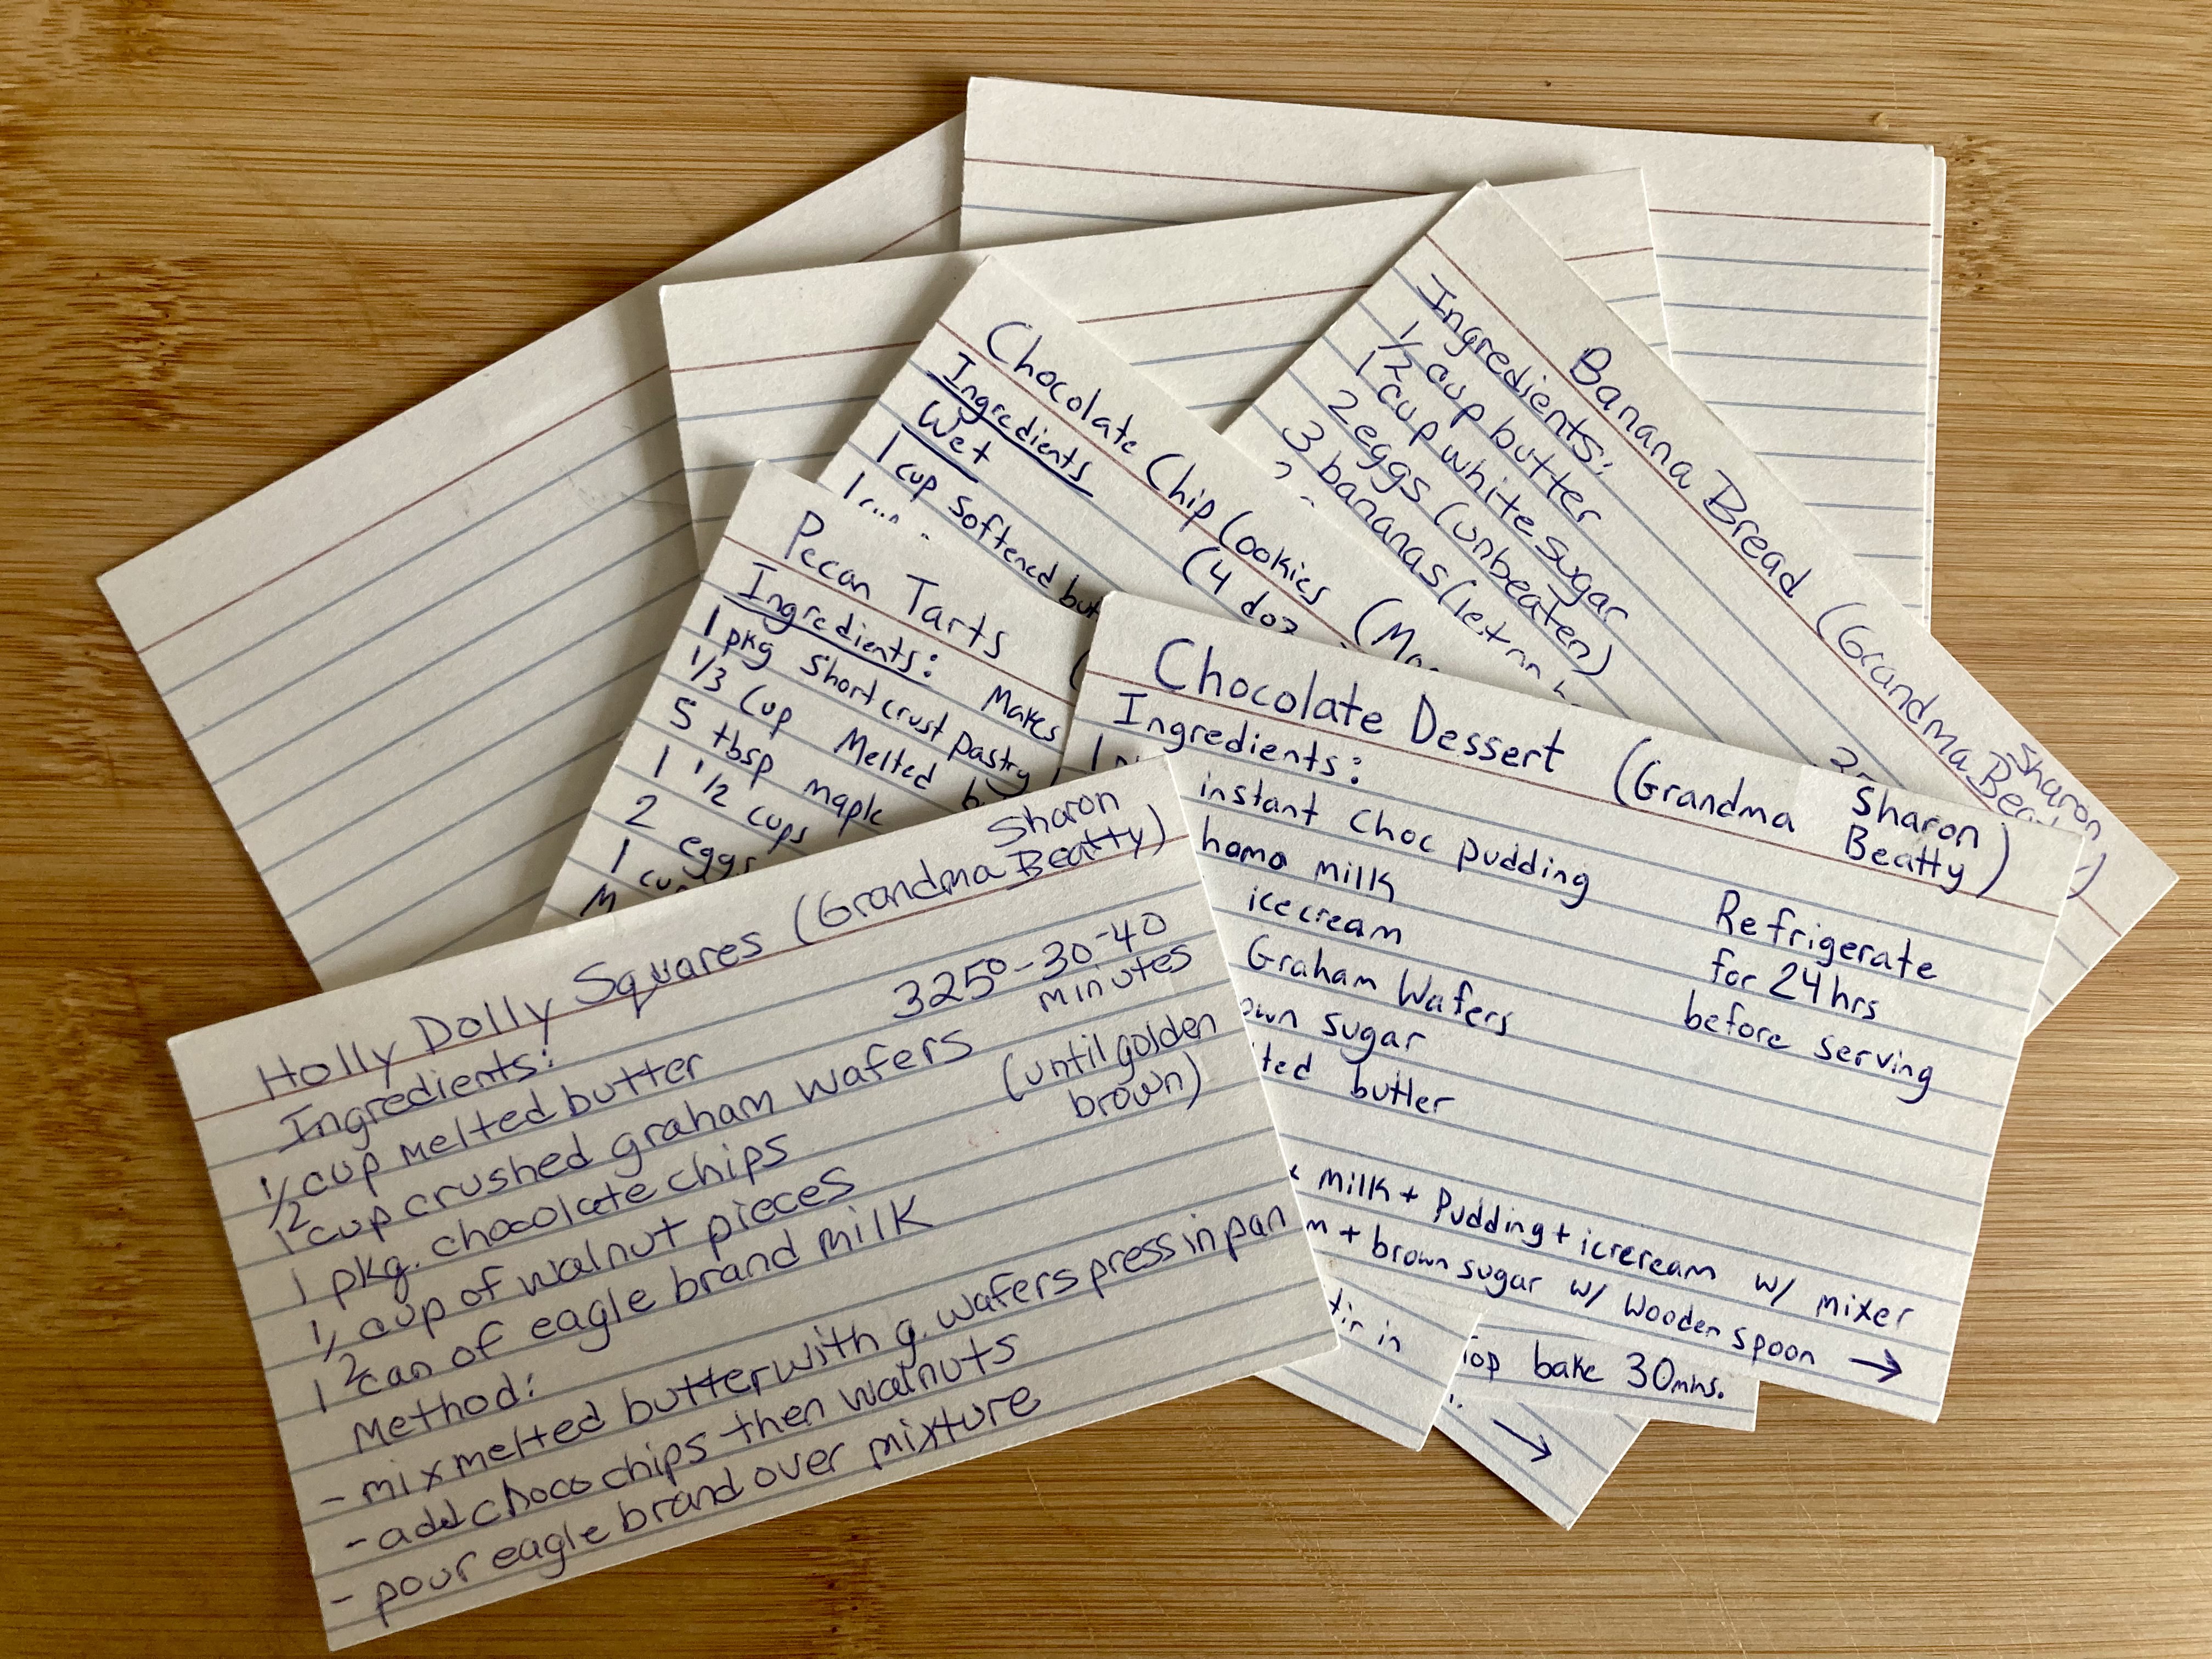 Banana Bread (Grandma Sharon
Ingredients:
1/2 cup butter
1 cup white sugar
2 eggs (unbeaten)
3 bananas (let
Chocolate Chip Cookies
Ingredients
(4 doz
Wet
1 cup softened
Pecan Tarts
Ingredients: Makes
1 pkg short crust pastry
1/3 cup Melted
5 tbsp maple
1 1/2 cups
2 eggs
1
Chocolate Dessert (Grandma Sharon Beatty)
Ingredients:
instant choc pudding
homo milk
icecream
Graham Wafers
sugar
butter
Refrigerate
for 24hrs
before serving
milk + Pudding + icrecream w/ mixer
+ brown sugar w/ Wooden spoon →
in
bake 30mins.
→
Holly Dolly Squares (Grandma Sharon Beatty)
Ingredients:
325° - 30-40
minutes
(until golden
brown)
1/2 cup melted butter
1 cup crushed graham wafers
1 pkg. chocolate chips
1/2 cup of walnut pieces
1 can of eagle brand milk
Method:
- mix melted butter with g. wafers press in pan
- add choco chips then walnuts
- pour eagle brand over mixture